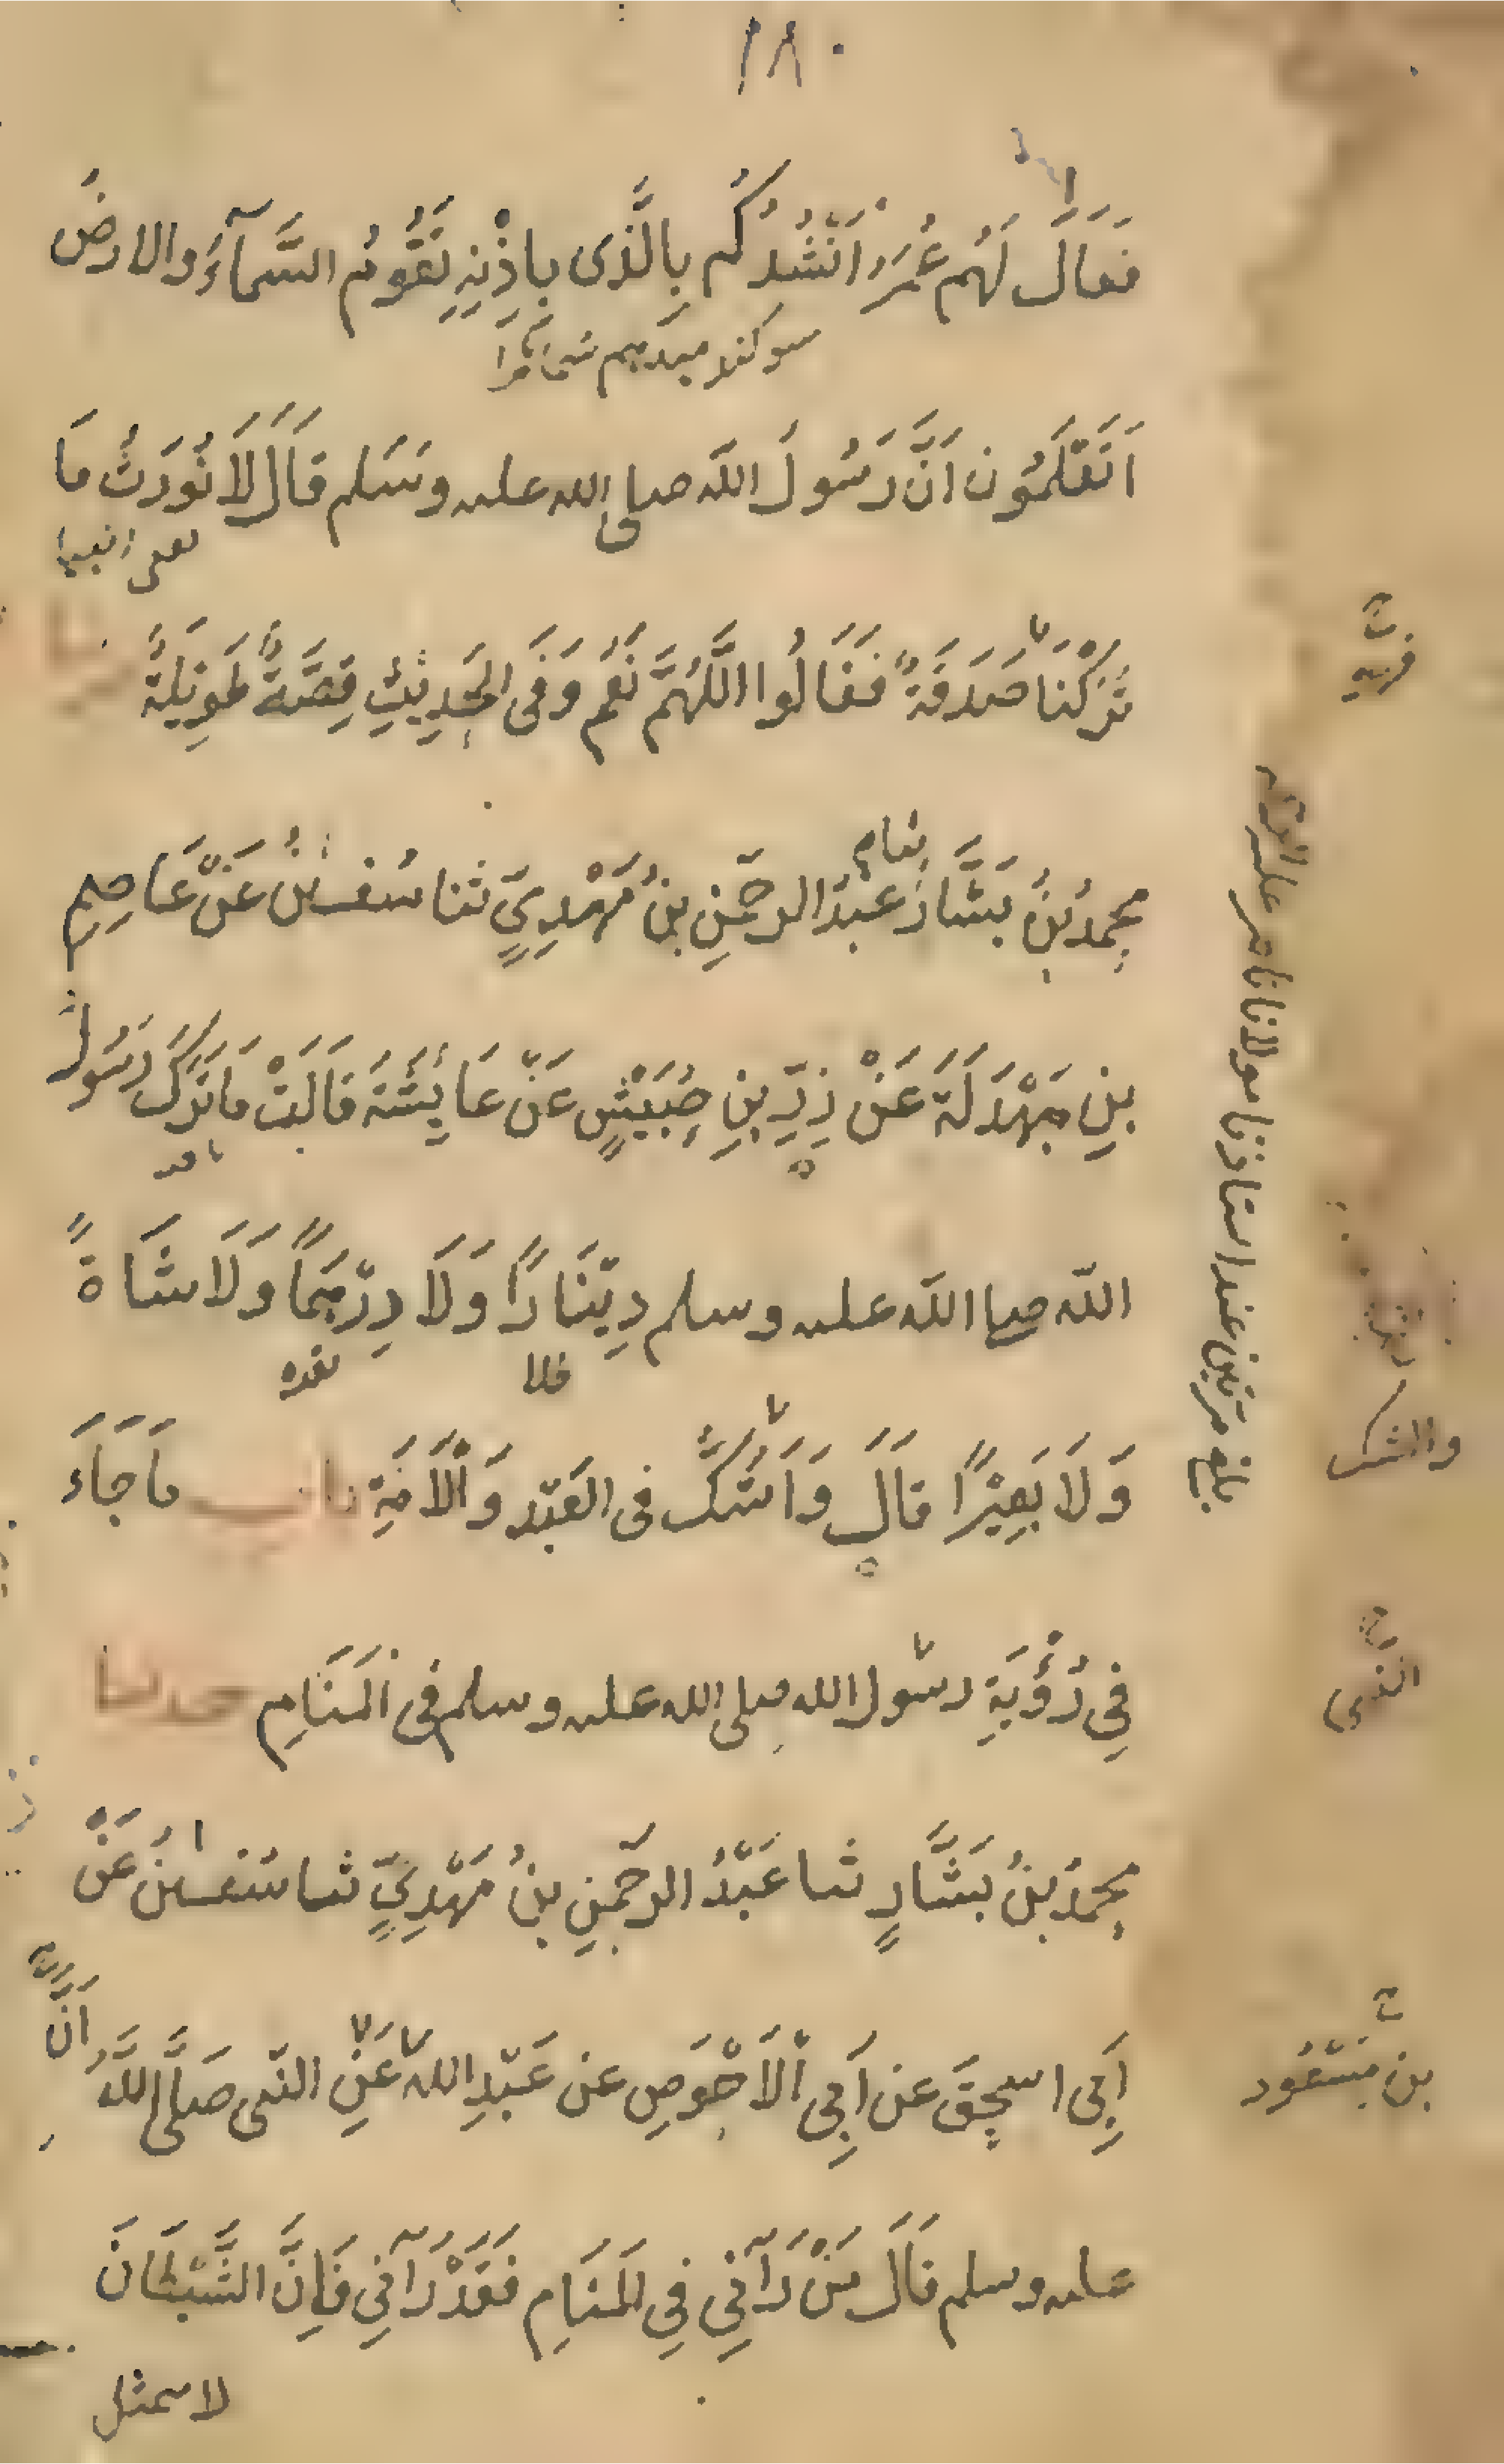 ١٨٠
فَقَالَ لَهُم عُمَرُ اَنْشُدُكُم بِالَّذِى بِاِذْنِهِ تَقُومُ السَّمَآءُ والارضُ
سوكند ميدهم شما مرا
اَتَعْلَمُون اَنَّ رَسُولَ اللّه صلى الله عليه وسَلم قَالَ لَا نُورَثُ مَا
تَرَكْنَا صَدَقَةً فَقَالُوا اللَّهُمَّ نَعَم وَفى الحَدِيثِ قِصَّةً طَوِيلَةً حدثنا
محمدُ بنُ بَشَّارٍ ثنا عَبْدُ الرحمٰنِ بنُ مَهْدِىٍّ ثنا سُفيٰنُ عَنْ عَاصِمِ
بنِ بَهْدَلَةَ عَنْ زِرِّ بنِ حُبَيْشٍ عَنْ عَائِشَةَ قَالَتْ مَا تَرَكَ رَسُولُ
اللّه صلى اللّه عليه وسلم دِيْنَارًا وَلَا دِرْهَمًا وَلَا شَاةً
وَلَا بَعِيْرًا قالَ وَاَشُكُّ فى العَبْد وَالْاَمَةِ باب مَا جَاءَ
فِى رُؤْيَةِ رسُول الله صلى الله عليه وسلم فى المَنَامِ حدثنا
محمدُ بنُ بَشَّارٍ ثنا عَبْدُ الرحمٰنِ بنُ مَهْدِىٍّ ثنا سُفيٰنُ عَنْ
اَبِى اسحٰقَ عن اَبِى الْاَحْوَصِ عن عَبْدِ اللّه عَنِ النّبى صَلَّى اللَّهُ
اَنَّ
عليه وسلم قَالَ مَنْ رَآنِى فِى المَنَامِ فَقَدْ رَآنِى فَاِنَّ الشَّيْطَانَ
لا يتمثل
والشك
الذى
بن مَسْعُود
بلغ مرتين عند استاذنا مولانا